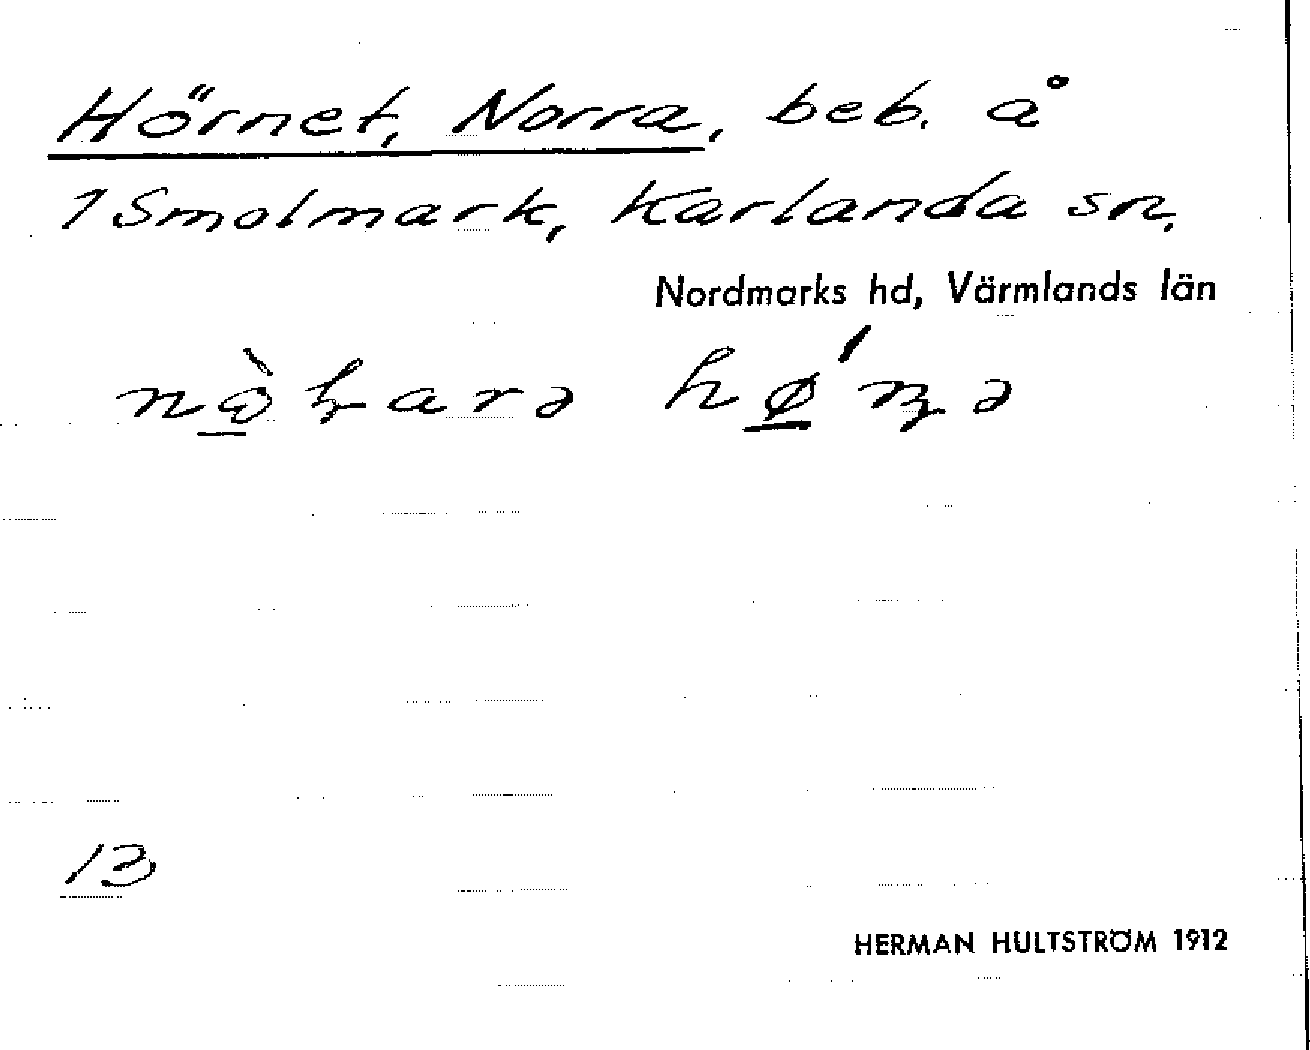 Hörnet, Norra, beb. å
1 Smolmark, Karlanda sn.
Nordmarks hd, Värmlands län
13
HERMAN HULTSTRÖM 1912